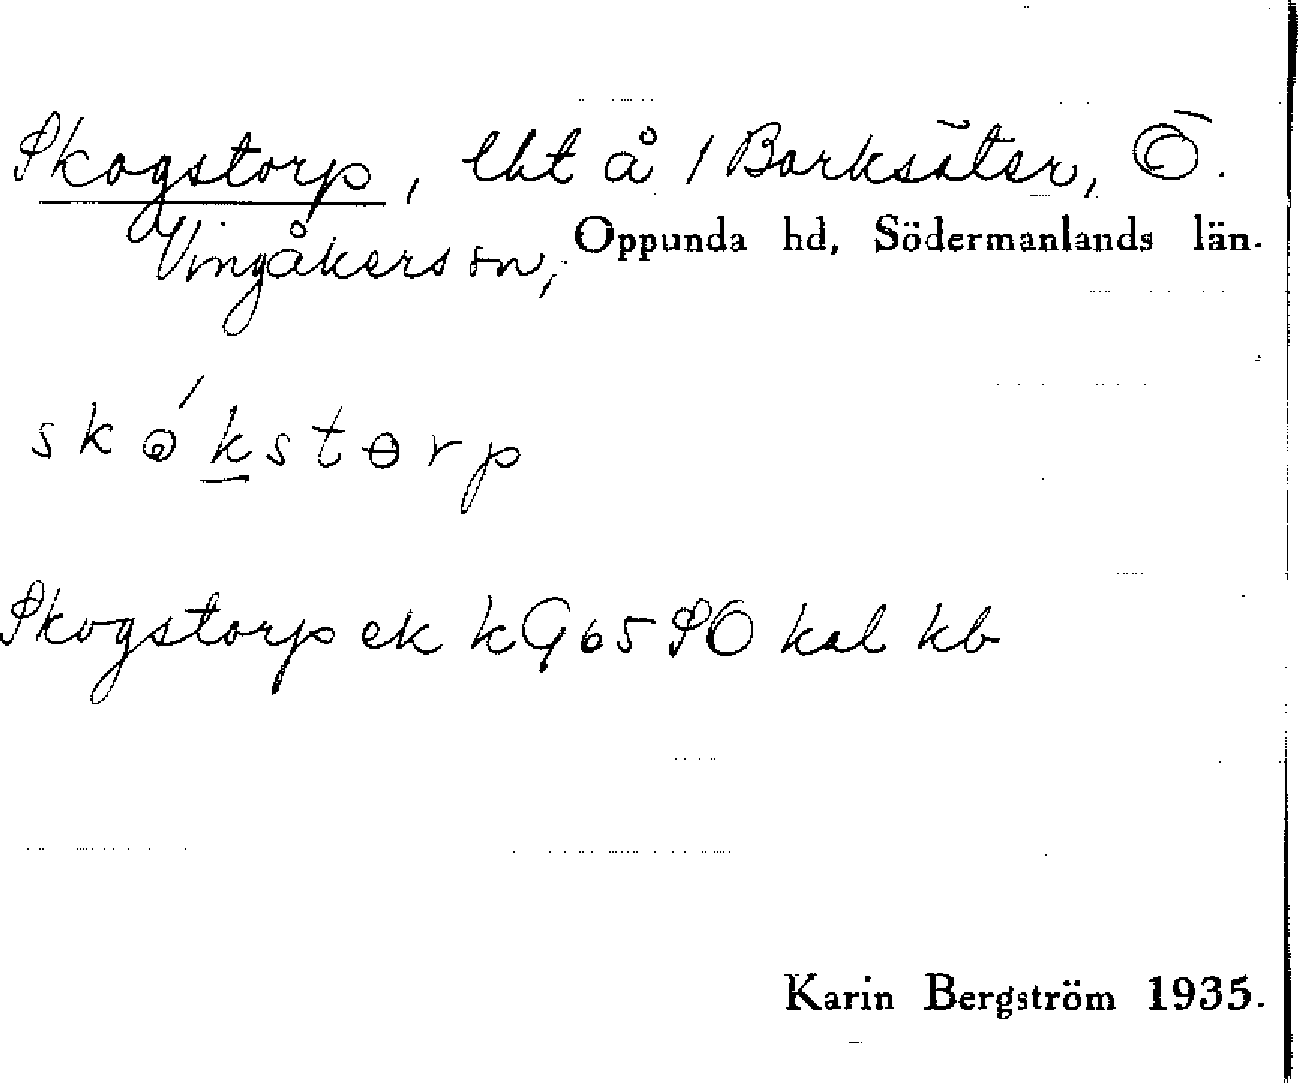 Skogstorp, lht å 1 Barksäter, Ö.
Vingåkers sn, Oppunda hd, Södermanlands län.
skókstɵrp
Skogstorp ek kG65SÖ kal kb
Karin Bergström 1935.